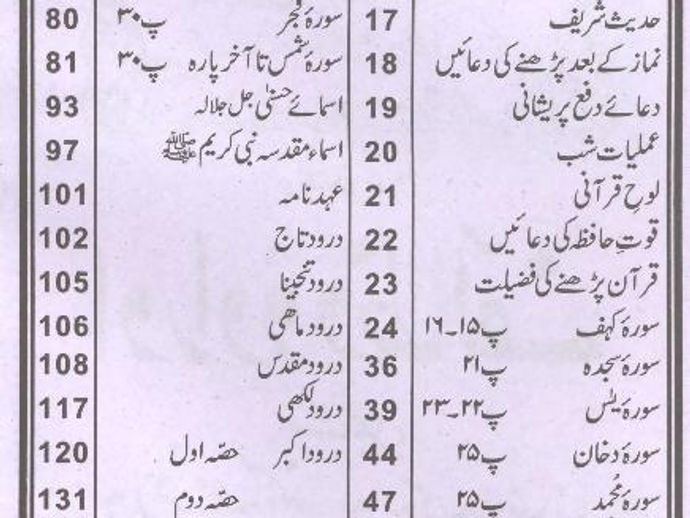 حدیث شریف 17
نماز کے بعد پڑھنے کی دعائیں 18
دعائے دفع پریشانی 19
عملیات شب 20
لوحِ قرآنی 21
قوتِ حافظہ کی دعائیں 22
قرآن پڑھنے کی فضیلت 23
سورۂ کہف پ۱۵۔۱۶ 24
سورۂ سجدہ پ۲۱ 36
سورۂ یٰسٓ پ۲۲۔۲۳ 39
سورۂ دخان پ۲۵ 44
سورۂ محُمد پ۲۵ 47
سورۂ فجر پ۳۰ 80
سورۂ شمس تا آخر پارہ پ۳۰ 81
اسمائے حسنٰی جل جلالہ 93
اسماء مقدسہ نبی کریم ﷺ 97
عہد نامہ 101
درود تاج 102
درود تنجینا 105
درود ماھی 106
درود مقدس 108
درود لکھی 117
درود اکبر حصّہ اول 120
حصّہ دوم 131